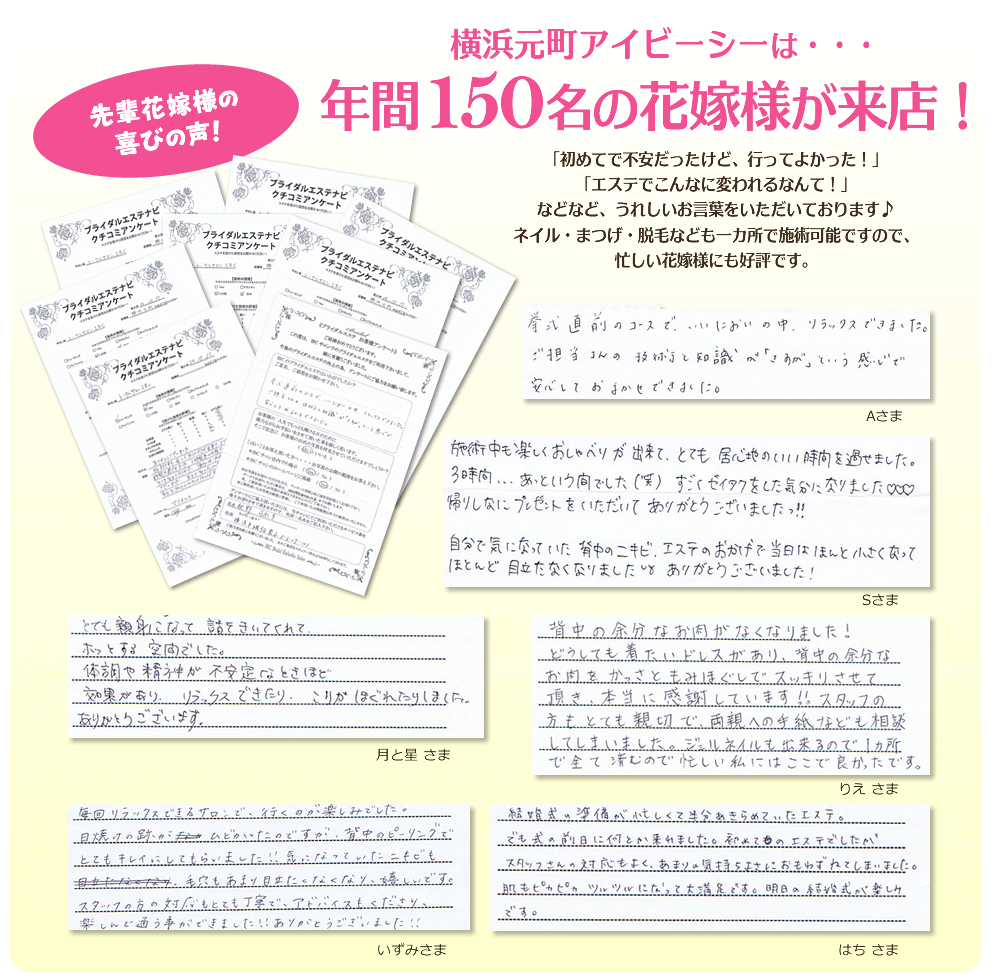 横浜元町アイビーシーは・・・
年間150名の花嫁様が来店！
先輩花嫁様の
喜びの声！
「初めてで不安だったけど、行ってよかった！」
「エステでこんなに変われるなんて！」
などなど、うれしいお言葉をいただいております♪
ネイル・まつげ・脱毛なども一カ所で施術可能ですので、
忙しい花嫁様にも好評です。
ブライダルエステナビ
クチコミアンケート
ブライダルエステナビ
クチコミアンケート
ブライダルエステナビ
クチコミアンケート
ブライダルエステナビ
クチコミアンケート
ブライダルエステナビ
クチコミアンケート
ブライダルエステナビ
クチコミアンケート
《ブライダルエステ お客様アンケート》
挙式直前のコースで、いいにおいの中、リラックスできました。
ご担当さんの技術と知識が「さすが」という感じで
安心しておまかせできました。
Aさま
施術中も楽しくおしゃべりが出来て、とても居心地のいい時間を過せました。
3時間...あっという間でした(笑) すごくゼイタクをした気分になりました♡♡♡
帰りしなにプレゼントをいただいてありがとうございましたっ!!
自分で気になっていた背中のニキビ、エステのおかげで当日はほんと小さくなって
ほとんど目立たなくなりました ありがとうございました!
Sさま
とても親身になって話をきいてくれて、
ホッとする空間でした。
体調や精神が不安定なときほど
効果があり、リラックスできたり、こりがほぐれたりしました。
ありがとうございます。
月と星 さま
背中の余分なお肉がなくなりました!
どうしても着たいドレスがあり、背中の余分な
お肉をかっさともみほぐしでスッキリさせて
頂き、本当に感謝しています!! スタッフの
方もとても親切で、両親への手紙なども相談
してしまいました。ジェルネイルも出来るので1ヵ所
で全て済むので忙しい私にはここで良かったです。
りえ さま
毎回リラックスできるサロンで、行くのが楽しみでした。
日焼けの跡がひどかったのですが、背中のピーリングで
とてもキレイにしてもらいました!! 気になっていたニキビも
、毛穴もあまり目立たくなくなり、嬉しいです。
スタッフの方の対応もとても丁寧で、アドバイスもくださり、
楽しんで通う事ができました!! ありがとうございました!!
いずみさま
結婚式の準備が忙しくて半分あきらめていたエステ。
でも式の前日に何とか来れました。初めてのエステでしたが
スタッフさんの対応もよく、あまりの気持ちよさにおもわずねてしまいました。
肌もピカピカ ツルツルになって大満足です。明日の結婚式が楽しみ
です。
はち さま